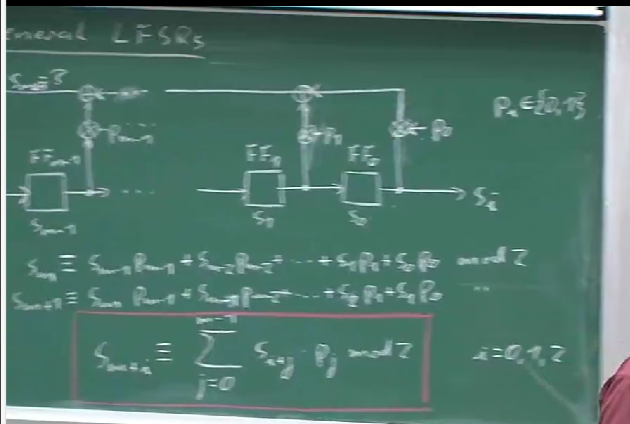 eneral LFSRs
s_m=?
p_i ∈ {0,1}
p_{m-1}
p_1
p_0
FF_{m-1}
FF_1
FF_0
...
s_i
s_{m-1}
s_1
s_0
s_m ≡ s_{m-1} p_{m-1} + s_{m-2} p_{m-2} + ... + s_1 p_1 + s_0 p_0 mod 2
s_{m+1} ≡ s_m p_{m-1} + s_{m-1} p_{m-2} + ... + s_2 p_1 + s_1 p_0 "
s_{m+i} ≡ \sum_{j=0}^{m-1} s_{i+j} · p_j mod 2
i=0,1,2